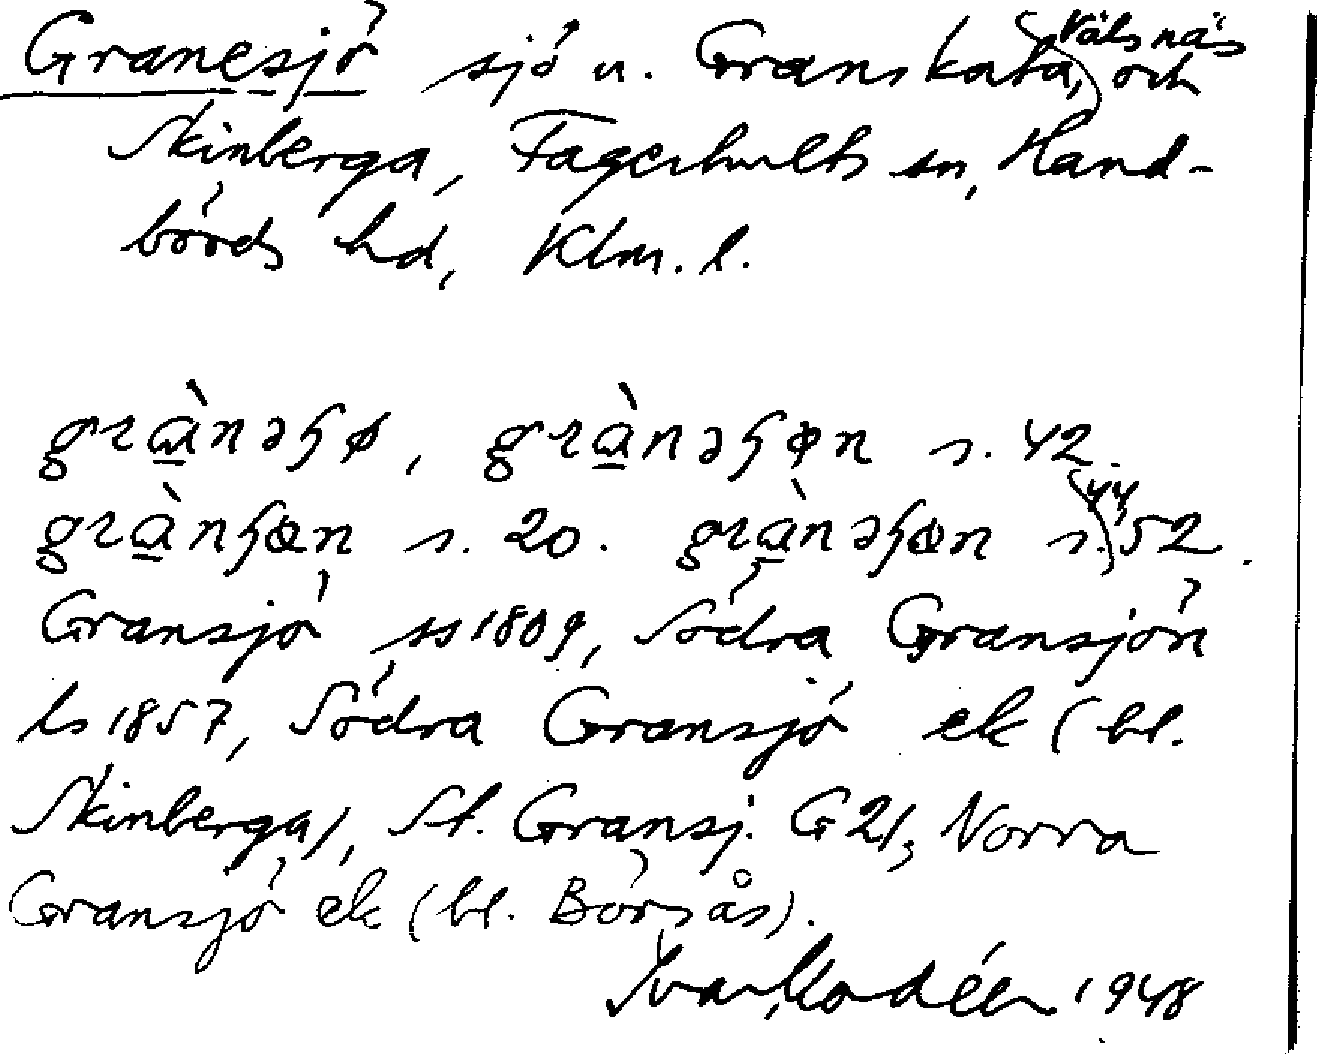 Granesjö sjö u. Granskata, Välsnäs och
Skinberga, Fagerhults sn, Hand-
börds hd, Klm. l.
grɑ̀nəɧø, grɑ̀nəɧøn s. 42.
grɑ̀nɧøn s. 20. grɑ̀nəɧøn s. 44, 52.
Gransjö ss 1809, Södra Gransjön
ls 1857, Södra Gransjö ek (bl.
Skinberga), St. Gransj. G 21, Norra
Gransjö ek (bl. Börsås).
Ivar Modéer 1948